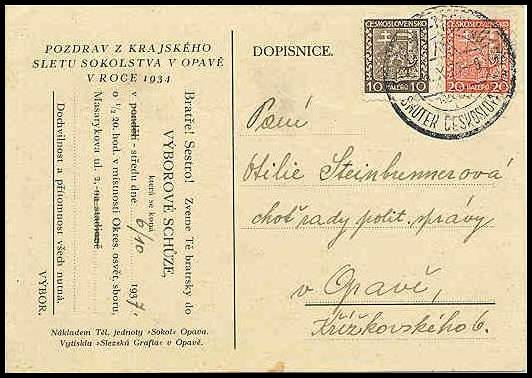 POZDRAV Z KRAJSKÉHO
SLETU SOKOLSTVA V OPAVĚ
V ROCE 1934
Bratře! Sestro! Zveme Tě bratrsky do
VÝBOROVÉ SCHŮZE,
která se koná
v pondělí - středu dne 6/10 1937,
o ½ 20. hod. v místnosti Okres. osvět. sboru,
Masarykova ul. 2,
Dochvilnost a přítomnost všech nutná.
VÝBOR.
Nákladem Těl. jednoty »Sokol« Opava.
Vytiskla »Slezská Grafia« v Opavě.
DOPISNICE.
ČESKOSLOVENSKO
10 HALÉŘŮ 10
ČESKOSLOVENSKO
20 HALÉŘŮ 20
Paní
Otilie Steinbrennerová
choť rady polit. správy
v Opavě,
Křížkovského 6.